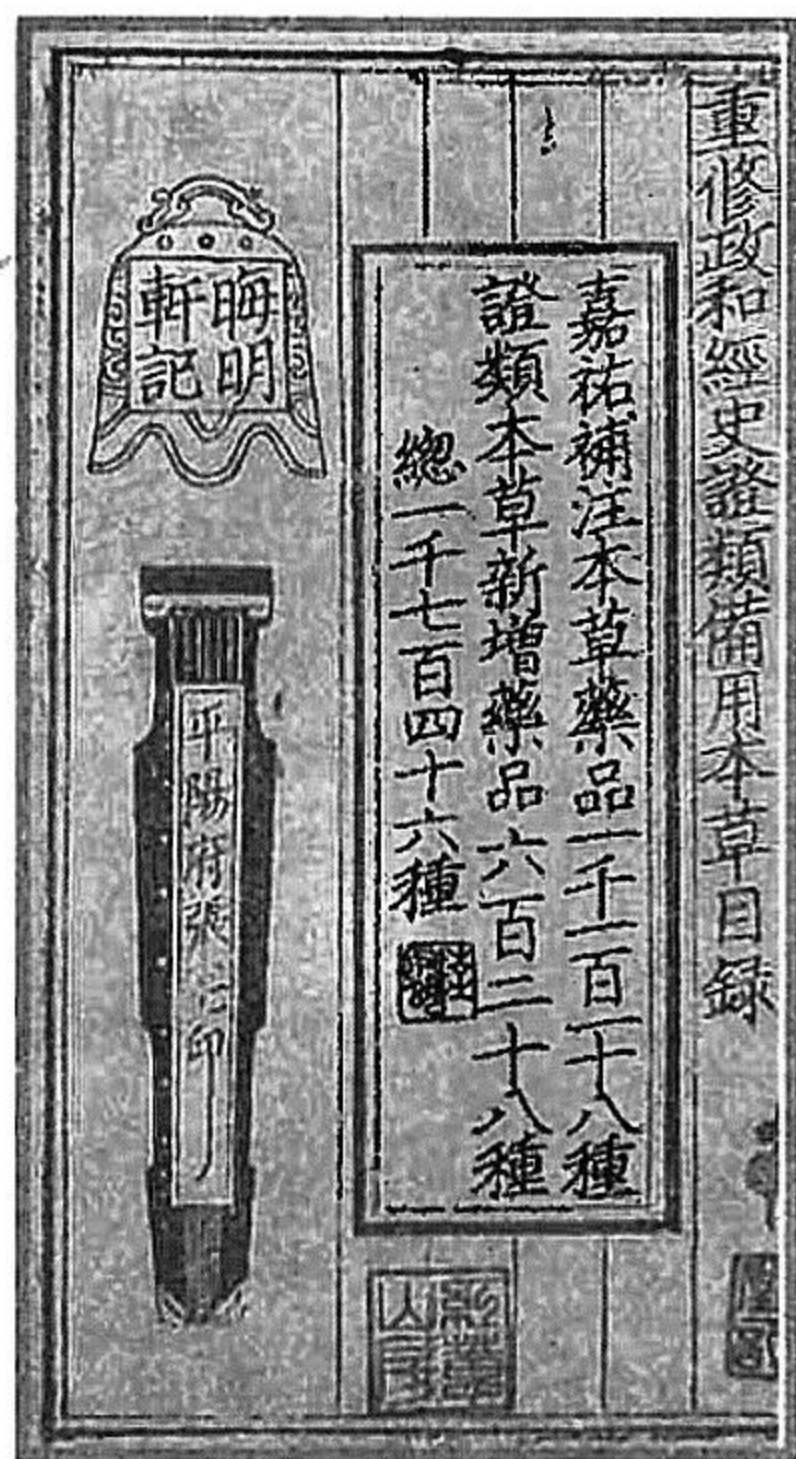 重修政和經史證類備用本草目録
嘉祐補注本草藥品一千一百一十八種
證類本草新增藥品六百二十八種
總一千七百四十六種
晦明
軒記
平陽府張宅印